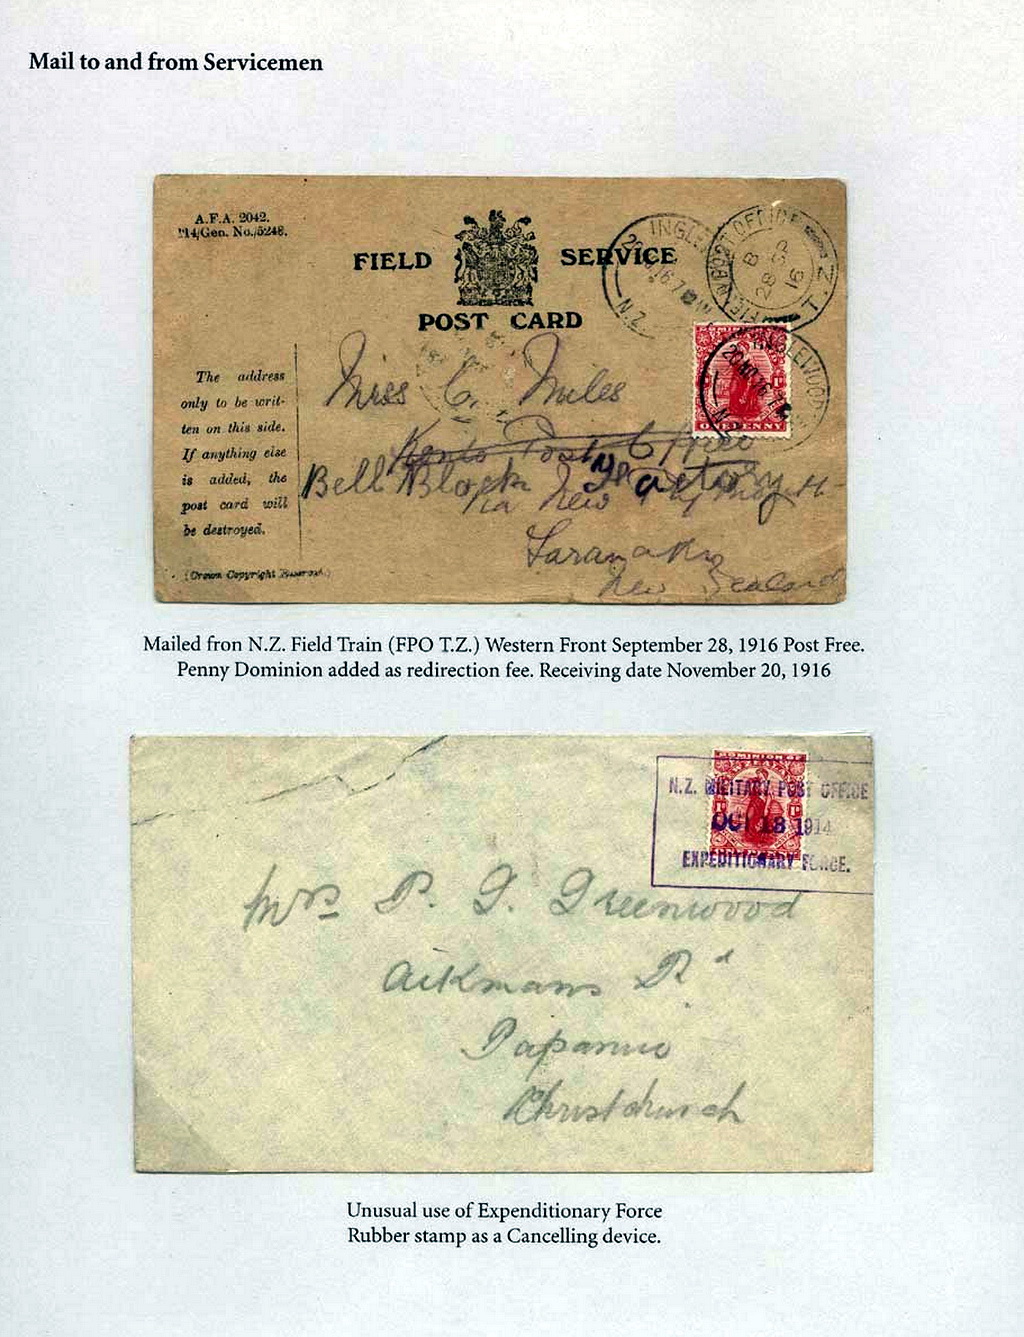 Mail to and from Servicemen
A.F.A. 2042.
114/Gen. No./5248.
FIELD SERVICE
POST CARD
INGLE
20 NO 16.7
N.Z.
FIELD POST OFFICE
B
28 SP
16
T.Z
DOMINION
ONE PENNY
INGLEWOOD
20 NO 16.7
N.Z.
The address
only to be writ-
ten on this side.
If anything else
is added, the
post card will
be destroyed.
(Crown Copyright Reserved.)
Miss C. Miles
Post Office
Bell Block Factory
via New Plymouth
Taranaki
New Zealand
Mailed fron N.Z. Field Train (FPO T.Z.) Western Front September 28, 1916 Post Free.
Penny Dominion added as redirection fee. Receiving date November 20, 1916
DOMINION OF
N.Z. MILITARY POST OFFICE
OCT 13 1914
EXPEDITIONARY FORCE.
Mrs P. G. Greenwood
Aikmans Rd
Papanui
Christchurch
Unusual use of Expenditionary Force
Rubber stamp as a Cancelling device.